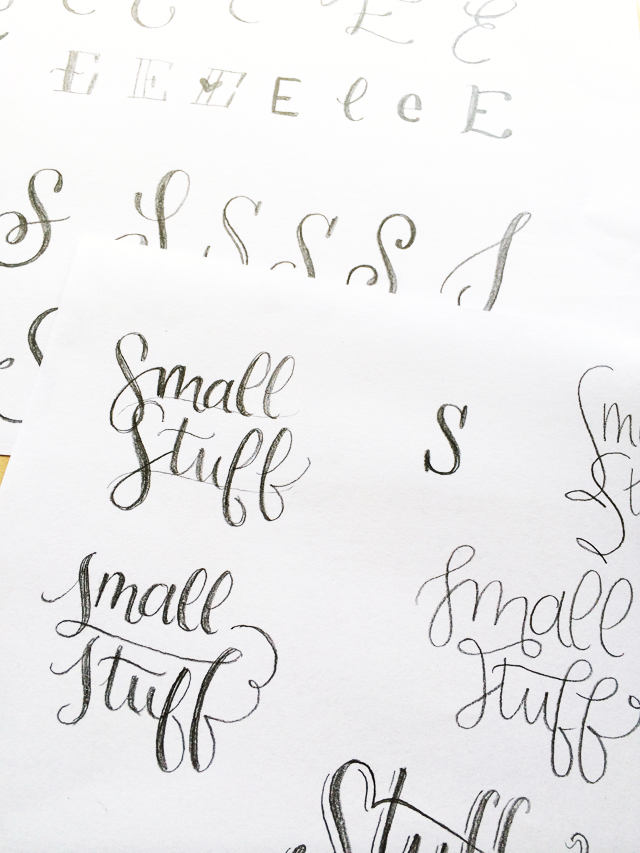 E E
E E E E e e E
S S S S S S
Small
Stuff
S
Small
Stuff
Small
Stuff
Stuff